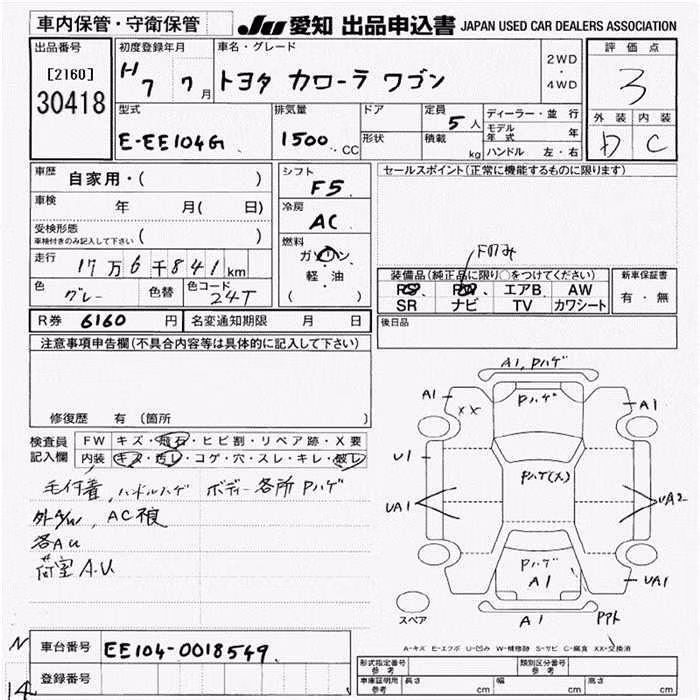 車内保管・守衛保管 JU 愛知 出品申込書 JAPAN USED CAR DEALERS ASSOCIATION
出品番号 初度登録年月 車名・グレード 2WD・4WD 評価点
[2160] H7 7月 トヨタ カローラ ワゴン 3
30418
型式 排気量 ドア 定員 5人 ディーラー・並行 外装 内装
E-EE104G 1500.CC 形状 積載 kg モデル年式 年 D C
ハンドル 左・右
車歴 自家用・( ) シフト F5 セールスポイント(正常に機能するものに限ります)
車検 年 月( 日) 冷房 AC
受検形態 ( )
車検付きのみ記入して下さい
燃料 ガソリン Fのみ
走行 17万6千841km 軽・油 装備品(純正品に限り○をつけてください) 新車保証書
色 グレー 色替 色コード 24T ( ) PS PW エアB AW 有・無
SR ナビ TV カワシート
R券 6160円 名変通知期限 月 日 後日品
注意事項申告欄(不具合内容等は具体的に記入して下さい)
修復歴 有(箇所 )
検査員 FW キズ・飛石・ヒビ割・リペア跡・X要
記入欄 内装 キズ・汚レ・コゲ・穴・スレ・キレ・破レ
毛付着, ハンドルハゲ ボディー各所 Pハゲ
AC不良
各AU
荷室 A.U
A1, Pハゲ
A1 XX Pハゲ A1
U1 Pハゲ(大)
UA1 UA2
Pハゲ A1 UA1
スペア A1
A-キズ E-エクボ U-凹み W-補修跡 S-サビ C-腐食 XX-交換済
N 車台番号 EE104-0018549
14 登録番号
形式指定番号 参考 類別区分番号 参考
車庫証明用 参考 長さ cm 幅 cm 高さ cm